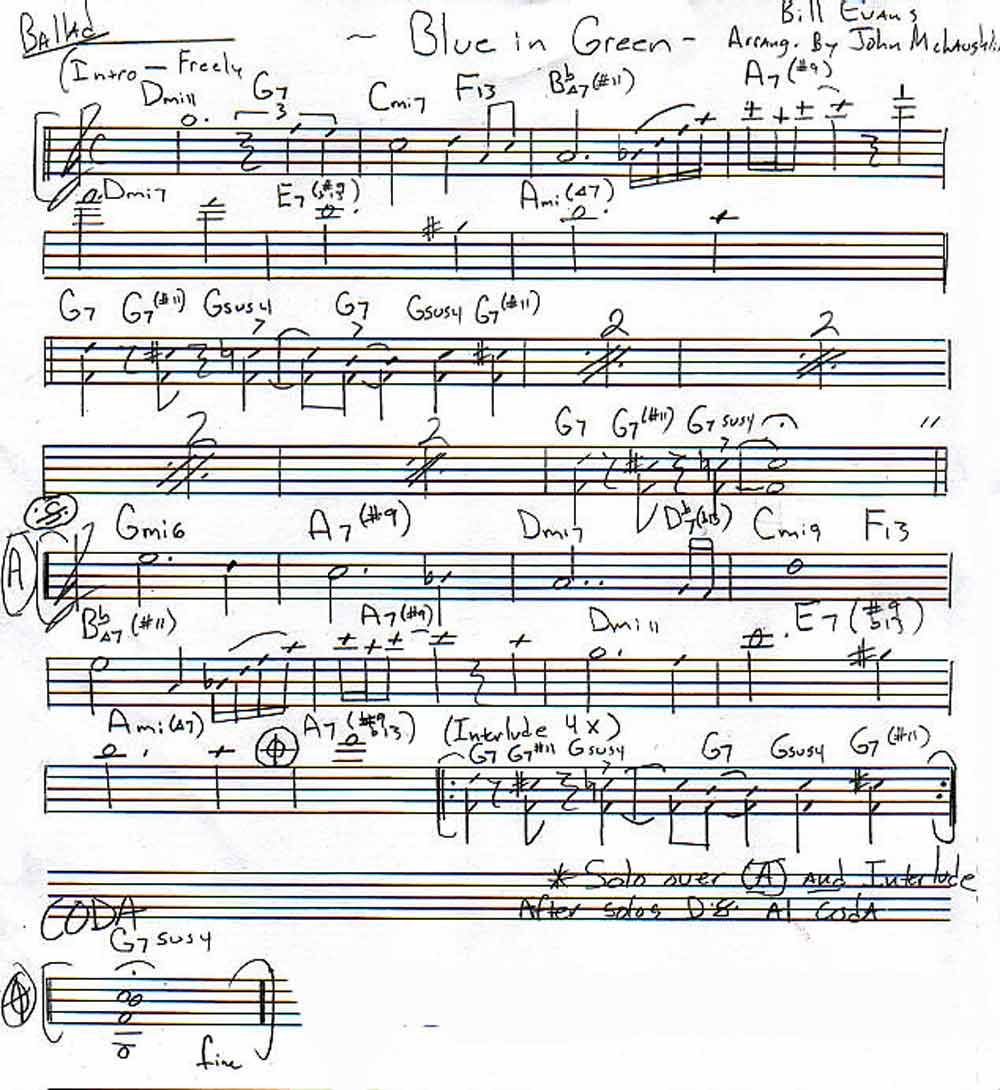 Ballad
~ Blue in Green -
Bill Evans
Arrang. By John McLaughlin
(Intro - Freely
Dmi11 G7 Cmi7 F13 Bb△7(#11) A7(#9)
3
Dmi7 E7(#9 b13) Ami(△7)
G7 G7(#11) Gsus4 G7 Gsus4 G7(#11)
2 2
2 2 G7 G7(#11) G7sus4
A Gmi6 A7(#9) Dmi7 Db7(b13) Cmi9 F13
Bb△7(#11) A7(#9) Dmi11 E7(#9 b13)
Ami(△7) A7(#9 b13) (Interlude 4x)
G7 G7#11 Gsus4 G7 Gsus4 G7(#11)
* Solo over (A) and Interlude
After solos D.S. Al Coda
CODA
G7sus4
fine